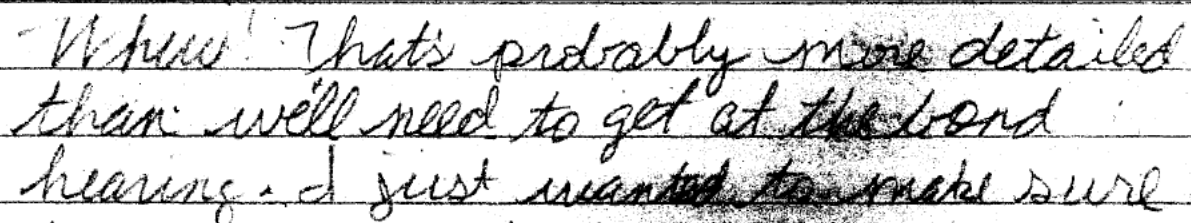 Whew! That's probably more detailed
than we'll need to get at the bond
hearing. I just wanted to make sure